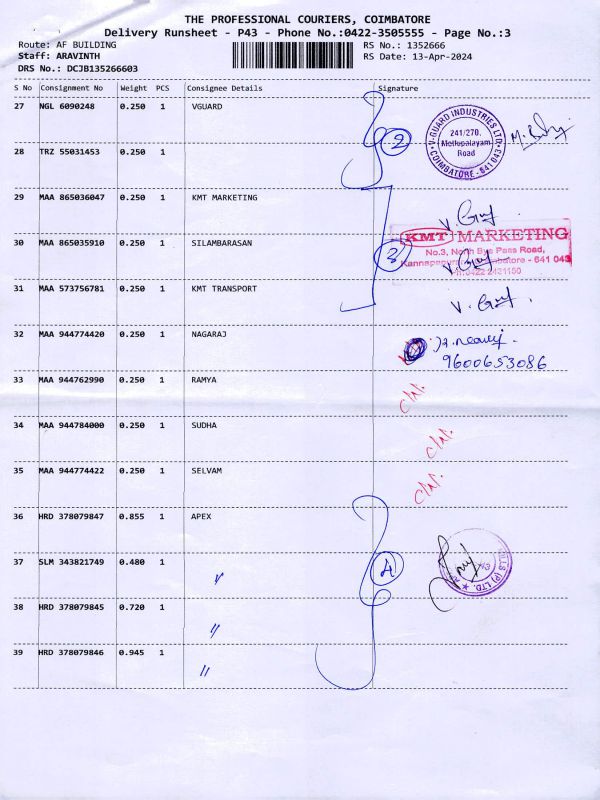 THE PROFESSIONAL COURIERS, COIMBATORE
Delivery Runsheet - P43 - Phone No.:0422-3505555 - Page No.:3
Route: AF BUILDING RS No.: 1352666
Staff: ARAVINTH RS Date: 13-Apr-2024
DRS No.: DCJB135266603
S No Consignment No Weight PCS Consignee Details Signature
27 NGL 6090248 0.250 1 VGUARD
V-GUARD INDUSTRIES LTD.
241/270,
Mettupalayam
Road
COIMBATORE - 641 043
2
28 TRZ 55031453 0.250 1
29 MAA 865036047 0.250 1 KMT MARKETING
KMT MARKETING
30 MAA 865035910 0.250 1 SILAMBARASAN
3
No.3, North Bye Pass Road,
641 043
Ph:0422 2431100
31 MAA 573756781 0.250 1 KMT TRANSPORT
32 MAA 944774420 0.250 1 NAGARAJ
9600653086
33 MAA 944762990 0.250 1 RAMYA
34 MAA 944784000 0.250 1 SUDHA
35 MAA 944774422 0.250 1 SELVAM
36 HRD 378079847 0.855 1 APEX
37 SLM 343821749 0.480 1 "
4
(P) LTD.
38 HRD 378079845 0.720 1 "
39 HRD 378079846 0.945 1 "